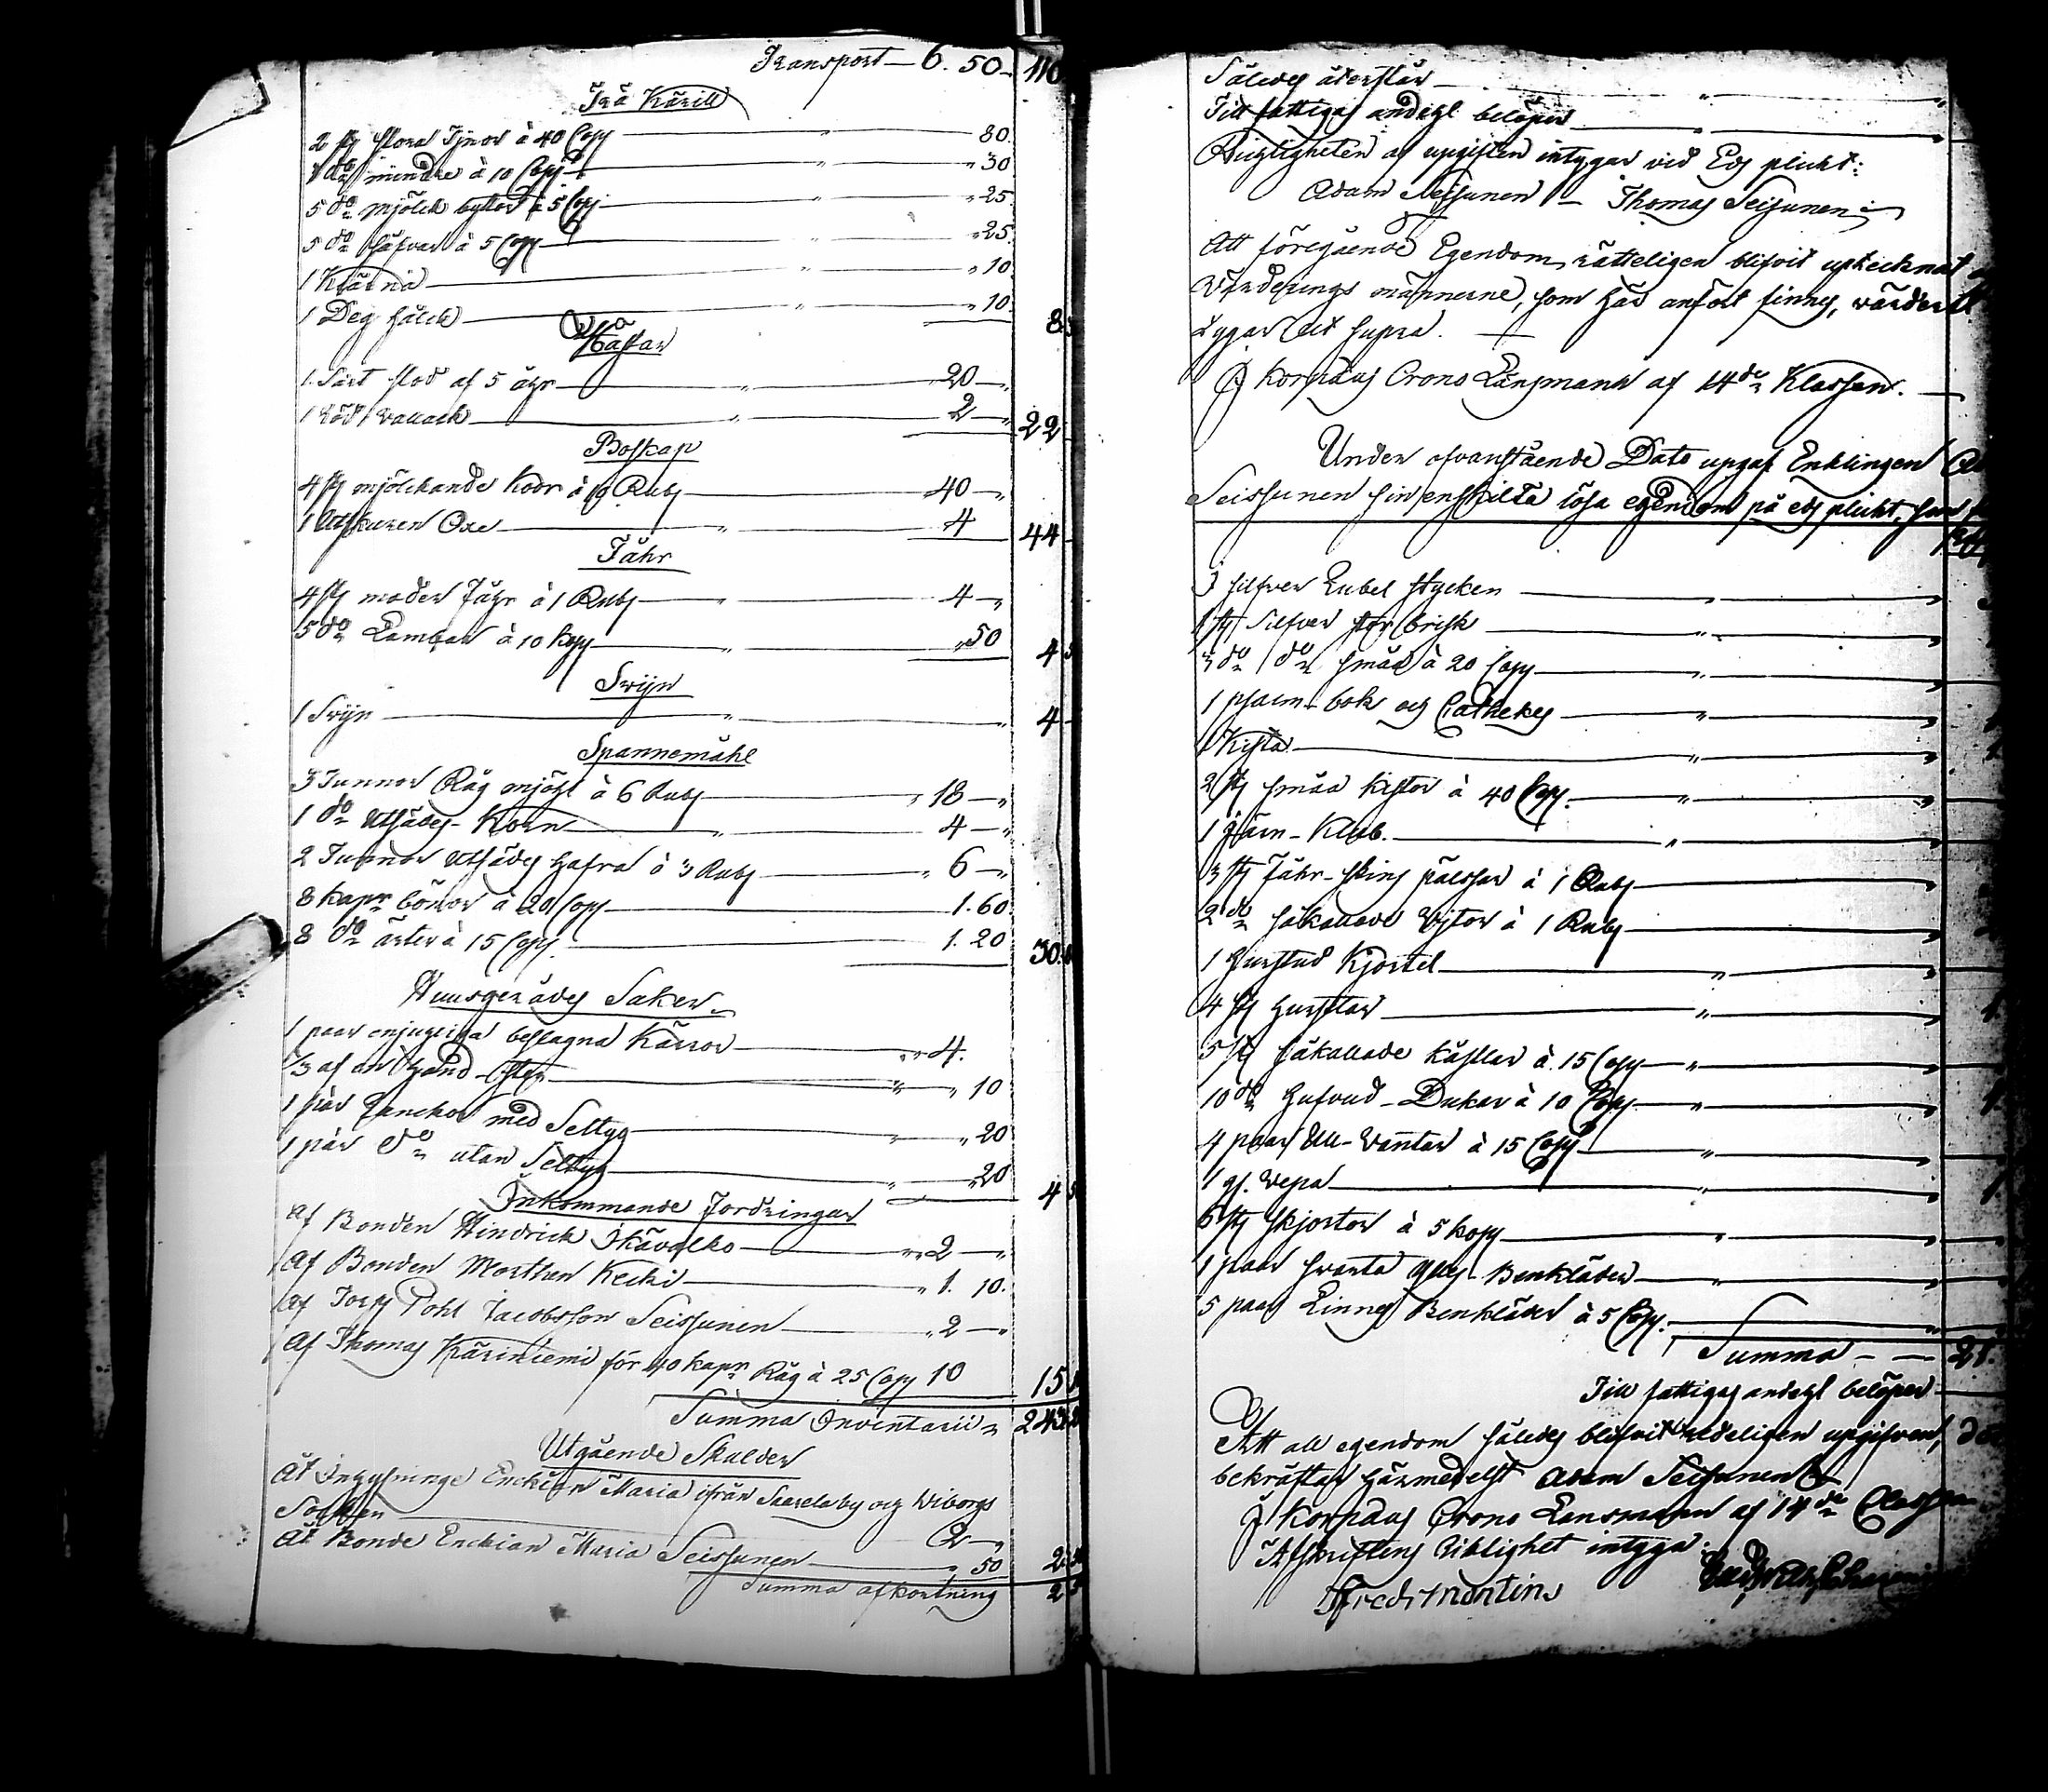 Transport — 6. 50 — 110
Trä Kärill
2 st stora Tjnor à 40 Cop — " — 80.
3 do mindre à 10 Cop — " — " 30
5 do mjölck byttor à 5 Cop — " 25.
5 do såfvar à 5 Cop — " — " 25.
1 Kärna — " — " 10
1 Deg hålck — " — " 10. 8
Hästar
1. Svart stod af 5 åhr — " — 20 — "
1 röd Vallack — " — 2 — " 22 —
Boskap
4 st mjölckande Koor à 10 Rub — 40 — "
1 Utskuren Oxe — " — 4 44 —
Fåhr
4 st moder Fåhr à 1 Rub — " — 4 — "
5 do Lambar à 10 kop — " — " 50 4
Swijn
1 Swijn — " — " 4 —
Spannemåhl
3 Tunnor Råg mjöhl à 6 Rub — " 18 — "
1 do Utsädes-Korn — " — 4 — "
2 Tunnor Utsädes Hafra à 3 Rub — " 6 — "
8 kapr bönor à 20 Cop — 1. 60.
8 do ärter à 15 Cop — 1. 20 30.
Huusgeråds Saker
1 paar beslagna Kärror — " " 4.
1/3 af en Hand — " — " 10
1 pår Ranckor med Seltyg — " — " 20
1 pår do utan Seltyg — " — " 20 4
Inkommande Fordringar
Af Bonden Hindrick — " " 2 — "
Af Bonden Morthen Kecki — " 1. 10.
af Torp Pohl Jacobsson Seissunen — " 2 — "
Af Thomas Käriniemi för 40 kapr Råg à 25 Cop 10 15
Summa Inventarii " 243
Utgående Skulder
Åt Enckian Maria ifrån Saarela by och Wiborgs
Sochen — 2 — "
Åt Bonde Enckian Maria Seissunen — " 50 2
Summa afkortning 2
Således återstår — " — "
Till fattigas andehl belöper — " —
Richtigheten af upgiften intygar vid Eds plickt:
Adam Seissunen — Thomas Seissunen
Att föregående Egendom rätteligen blifvit uptecknat
Värderings männerne, som här anfört finnes, värderat
tygar Ut Supra. —
J Korpäus Crono Länsmann af 14de Klassen. —
Under ofvanstående Dato upgaf Enklingen
Seissunen sin enskilta lösa egendom på eds plickt, som
3 silfver Rubel stycken — " — "
1 st Silfver stor brisk — " — "
3 do do små à 20 Cop — " — "
1 psalm-bok och Cathekes — " — "
1 Kista — " — "
2 st småa kistor à 40 Cop. — " — "
1 Järn-Klub. — "
3 st Fåhr-skins pälssar à 1 Rub — "
2 do såkallade Vijtor à 1 Rub — "
1 Kjortel — " — "
4 st Hurstar — " — "
5 st såkallade à 15 Cop — " — "
10 do Hufvud-Dukar à 10 Cop — " — "
4 paar Ull-Vantar à 15 Cop — " — "
1 gl. Vepa — " — "
6 st skjortor à 5 kop — " — "
1 paar svarta ylles Benkläder — " — "
5 paar Linnes Benkläder à 5 Cop. — "
Summa — — 21.
Till fattigas andehl belöper —
Att all egendom således blifvit redeligen upgifven,
bekräftar härmedelst Adam Seissunen
J Korpäus Crono Lansmann af 14de Classen
Afskriftens riktighet intyga:
Fredr Mortin